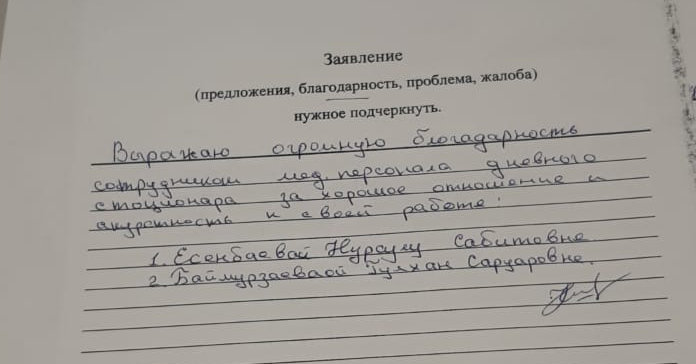 Заявление
(предложения, благодарность, проблема, жалоба)
нужное подчеркнуть.
Выражаю огромную благодарность
сотрудникам мед. персонала дневного
стационара за хорошое отношение и
акуратность к своей работе.
1. Есенбаевай Нурсулу Сабитовне
2. Баймурзаеваой Гулхан Саруаровне.